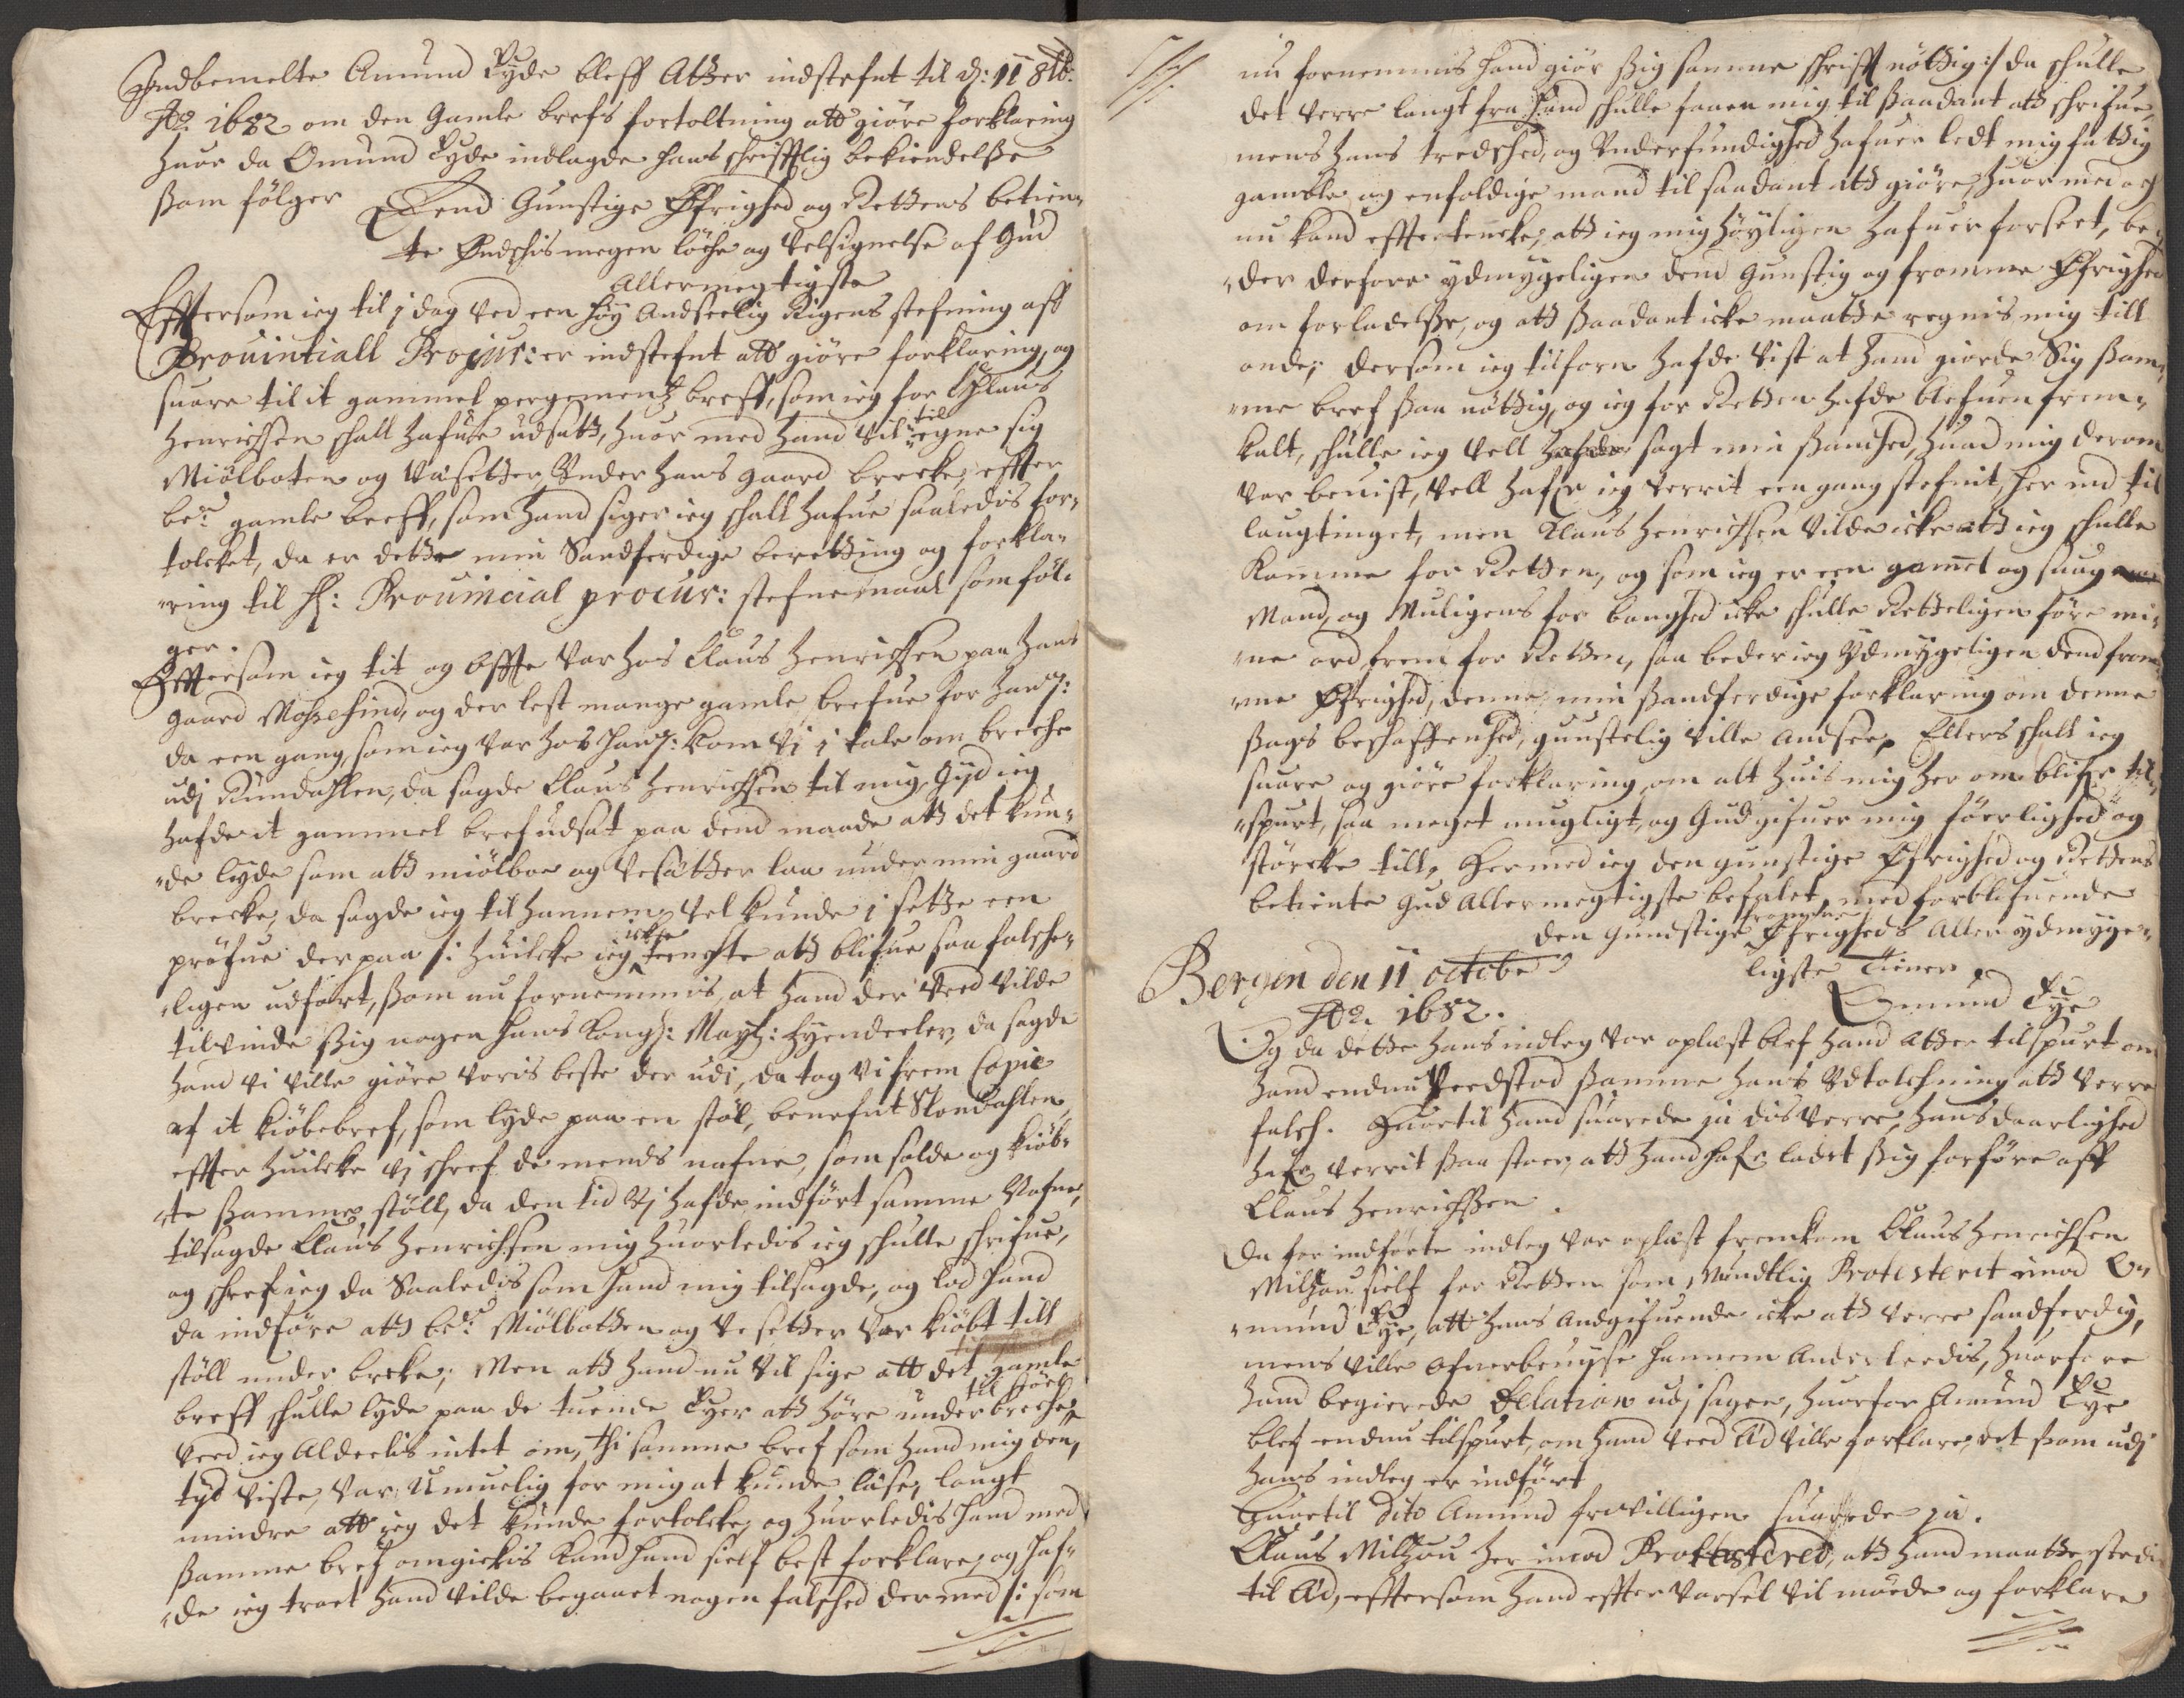 Indbemelte Amund Tyde bleff Atter indstefnt til d: 11 8tb:
Ao. 1682 om den Gamle brefs fortoltning att giöre forklaring
huor da Omund Tyde indlagde hans schrifftlig bekiendelsse
ssom fölger Dend Gunstige Øfrighed og Rettens betien¬
te Ønschis megen löche og Velsignelse af Gud
Allermegtigste
Efftersom ieg til i dag ved een höy Andseelig Rigens stefning aff
Prouintiall Procur: er indstefnt att giöre forklaring, og
suare til it gammel pergementz breff, som ieg for Claus
Henrichsen schall hafue udsatt, huor med hand vil til egne sig
Miölboten og Vasetter Under hans gaard brecke, effter
ber: gamle breff, som hand siger ieg schall hafue saaledis for¬
tolcket, da er dette min Sandferdige beretting og forkla¬
ring til H: Prouincial procur: stefnemaal som föl¬
ger.
Efftersom ieg tit og Offte Var hos Claus Henrichsen paa hans
gaard Mossesind, og der lest mange gamle brefue for hannem:
da een gang, som ieg var hos hannem: kom Vi i tale om breche
udj Rundahlen, da sagde Claus Henrichsen til mig, Gid ieg
hafde it gammel bref udsat paa dend maade att det kun¬
de lyde som att miölboe og Vesätter laa under min gaard
brecke, da sagde ieg til hannem, Vel kunde i sette een
pröfue der paa /: huilcke ieg icke tenchte att blifue saa falsche¬
ligen udfört, ssom nu fornemmis, at hand der Veed Vilde
tilvinde ssig nogen hans Kongl: Mayts: Eyendeeler, da sagde
hand Vi Ville giöre voris beste der udi, da tog Vi frem Copie
af it kiöbebref, som lyde paa en stöl, benefnt Skondahlen,
effter huilcke Vj schref de mends nafne, som solde og kiöb¬
te ssamme stöll, da den tid Vj hafde indfört samme Nafne,
tilsagde Claus Henrichsen mig huorledis ieg schulle schrifue,
og schref ieg da Saaledis som hand mig tilsagde, og lod hand
da indföre att ber: Miölbotten og Vesetter Var kiöbt till
stöll under brecke; Men att hand nu vil sige att det gamle
breff schulle lyde paa de tuende Eyer att höre under breche til stöel
Veed ieg Aldeelis intet om, thi samme bref som hand mig den¬
tyd viste, Var Umuelig for mig at kunde läse, langt
mindre att ieg det kunde fortolcke, og huorledis hand med
ssamme bref omgickis kand hand sielf best forklare, og haf¬
de ieg troet hand vilde begaaet nogen falsched der med /: som
nu fornemmis hand giör ssig samme schrifft nöttig :/ da schulle
det verre langt fra hand schulle faaen mig til ssaadant att schrifue,
mens hans tredsched, og Underfundighed hafuer ledt mig fattig
gamble og enfoldige mand til saadant att giöre, huor med ieg
nu kand efftertencke, att ieg mig höyligen hafuer forseet, be¬
der derfore ydmygeligen dend Gunstig og fromme Øfrighed
om forladelsse, og att ssaadant icke maatte regnis mig till
onde; dersom ieg tilforn hafde Vist at hand giorde Sig ssam¬
me bref ssaa nöttig, og ieg for Retten hafde blefuen frem¬
kalt, schulle ieg Vell hafde sagt min ssandhed, huad mig derom
Var beuist, vell hafr ieg verrit een gang stefnit, her ind til
laugtinget, men Claus Henrichsen Vilde icke att ieg schulle
Komme for Retten, og som ieg er een gamel og suag
Mand, og Muligens for banghed icke schulle Retteligen före mi¬
ne ord frem for Retten, saa beder ieg Ydmygeligen dend from¬
me Øfrighed, denne min ssandferdige forklaring om denne
ssags beschaffenhed, gunstelig ville Andsee, Ellers schall ieg
suare og giöre forklaring om alt huis mig her om blifr til¬
spurt, saa meget mugligt, og Gud gifuer mig föerlighed og
störcke till, Hermed ieg den gunstige Øfrighed og Rettens
betiente Gud Allermegtigste befalet, med forblifuende
den Gundstige fromme Øfrigheds Aller ydmyge¬
ligste Tiener
Bergen den 11 octobr
Ao. 1682.
Omund Tye
Og da dette hans indleg Var oplæst blef hand Atter tilspurt om
hand endnu Veedstod ssamme hans Udtolchning att verre
falsch. Huortil hand suarede ja dis verre, hans daarlighed
hafr verrit ssaa stoer, att hand hafr ladet ssig forföre aff
Claus Henrichssen.
Da for indförte indleg var oplæst fremkom Claus Henrichsen
Milzou sielf for Retten som Mundtlig Protesterit imod O¬
mund Tye, att hans Andgifuende icke att verre sandferdig,
mens ville ofuerbeuyse hannem Anderleedis, huorfore
hand begierede Delation udj sagen, huorfor Amund Tye
blef endnu tilspurt, om hand veed Æd ville forklare, det ssom udj
hans indleg er indfört
Huortil dito Amund frivilligen suarede ja.
Claus Milzou her imod Protesteret, att hand maatte stedis
til Æd, efftersom hand effter Varsel vil möede og forklare